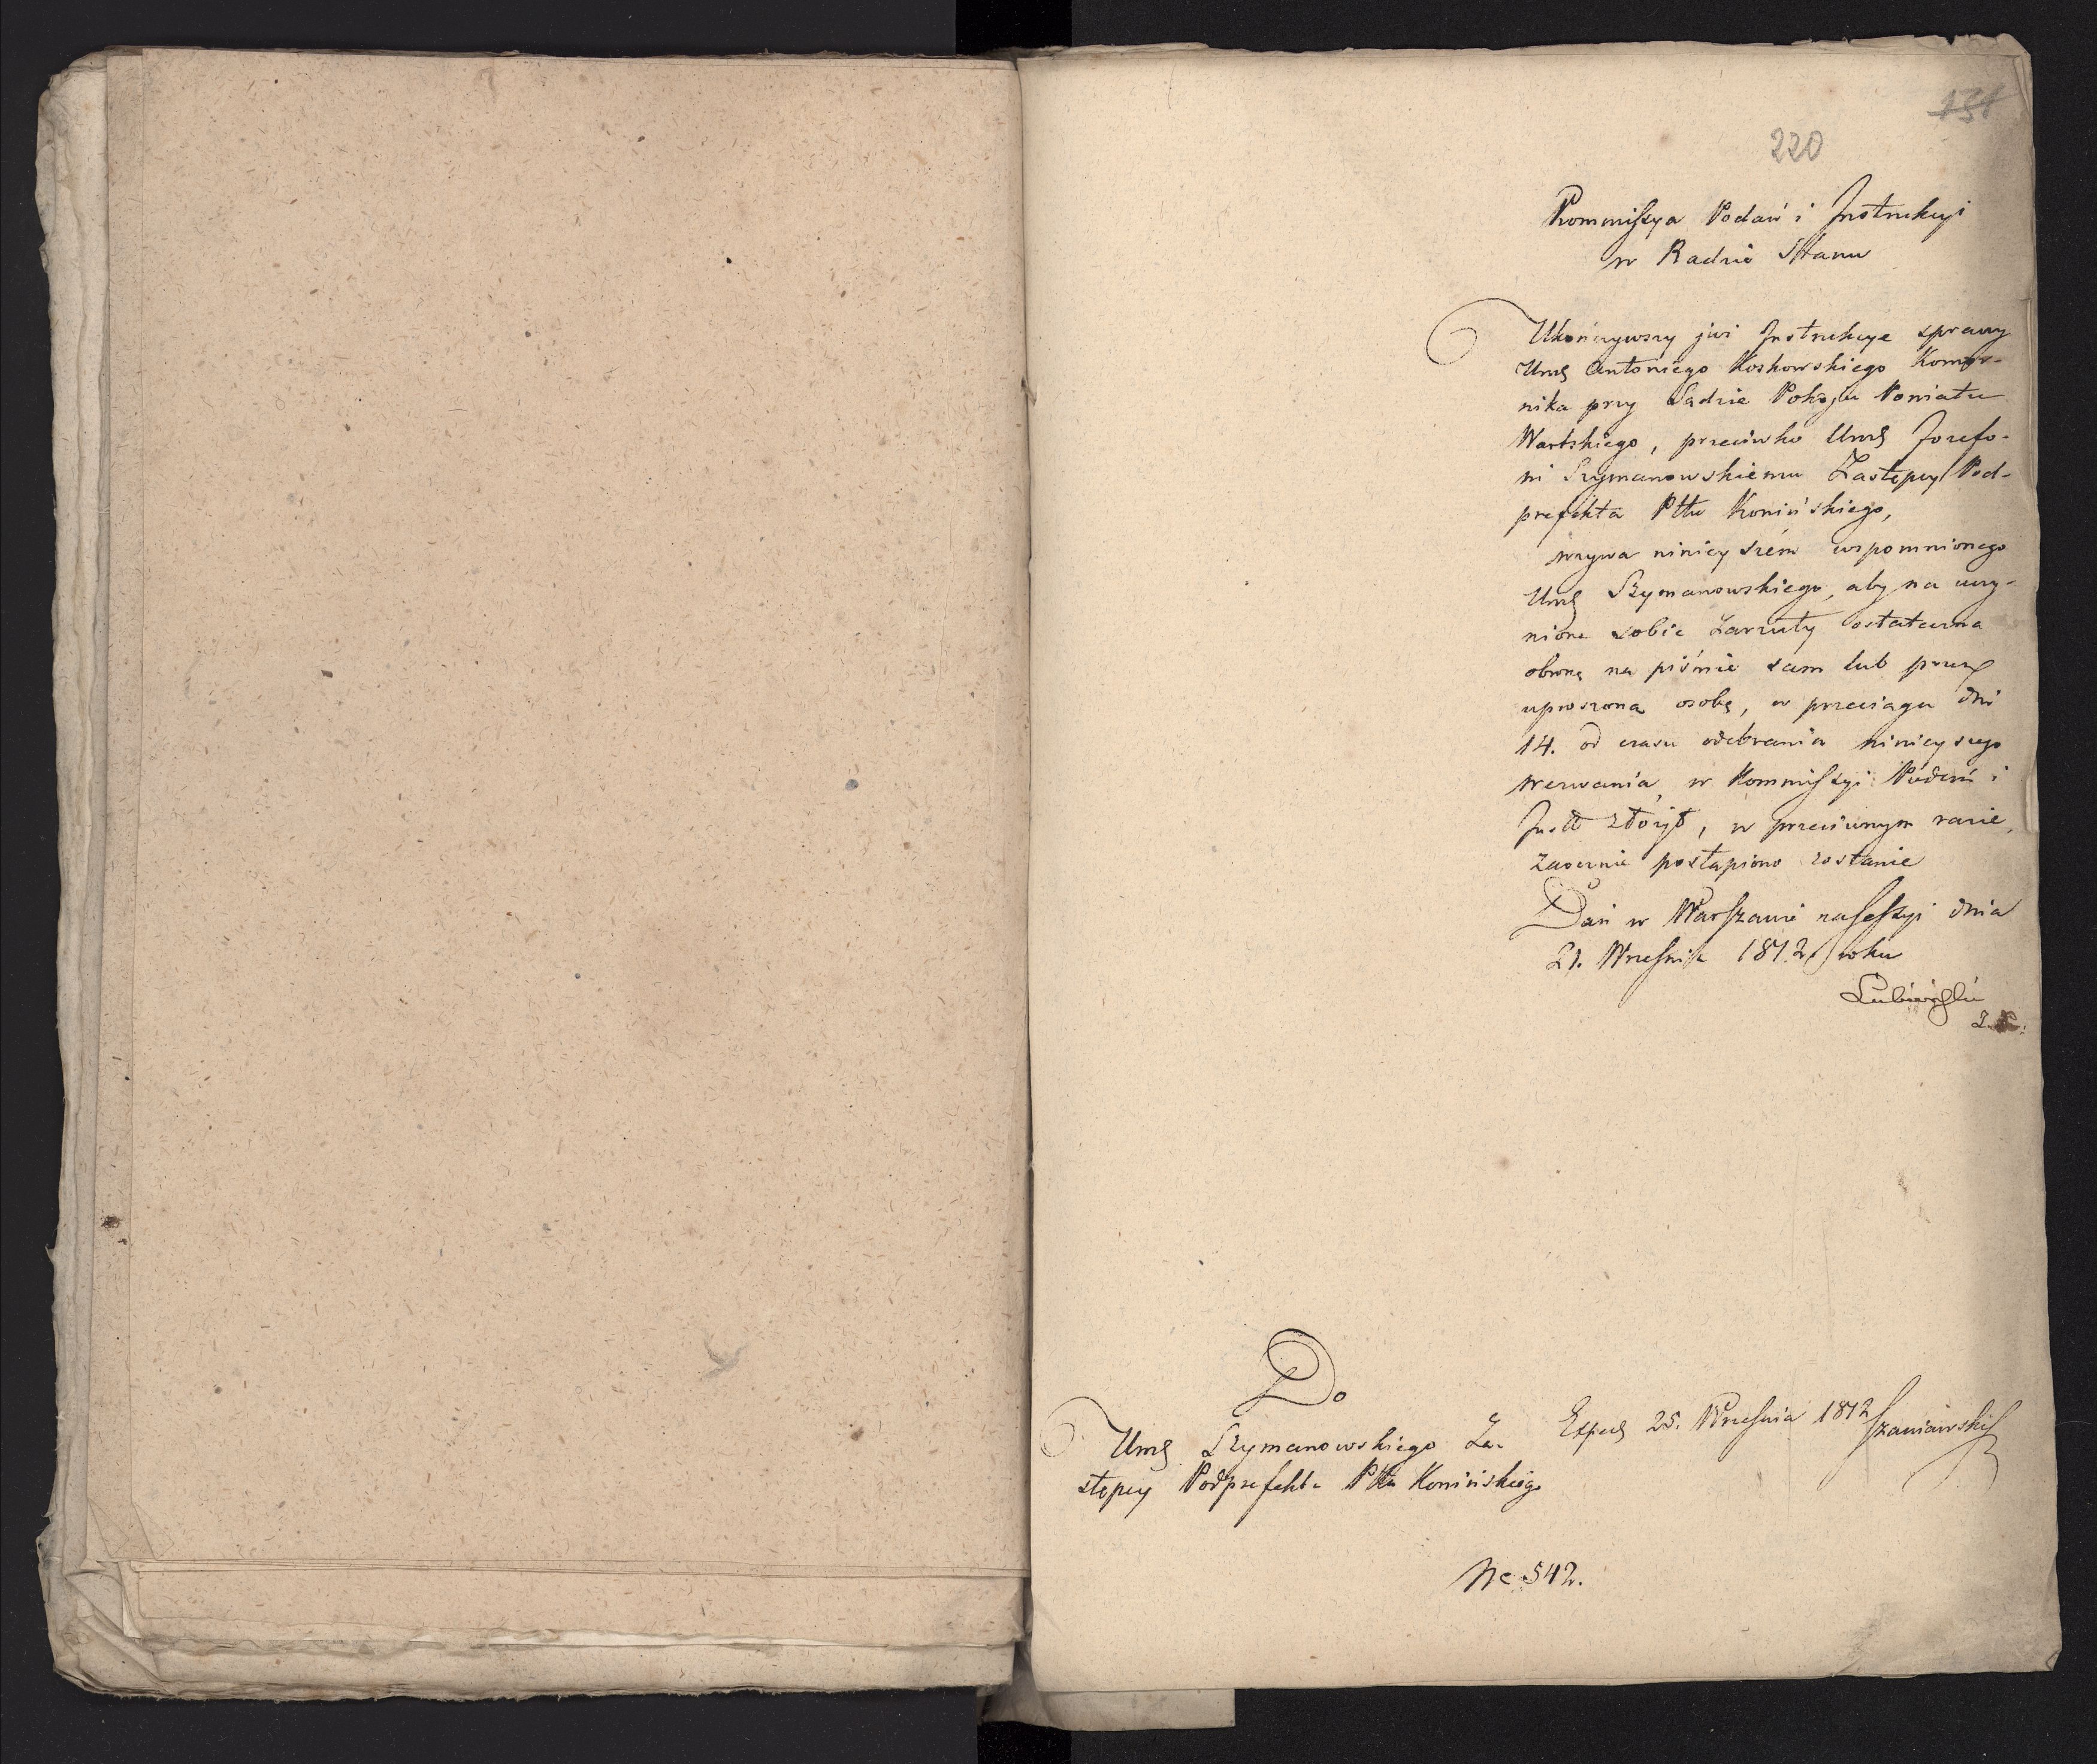 131
220
Kommissya Podań i Instrukcyi
w Radzie Stanu
Ukończywszy już Instrukcye sprawy
Urod Antoniego Koskowskiego Komor-
nika przy Sądzie Pokoju Powiatu
Wartskiego, przeciwko Urod Jozefo-
wi Szymanowskiemu Zastępcy Pod-
prefekta Pttu Konińskiego,
wzywa ninieyszém wspomnionego
Urod Szymanowskiego, aby na uczy-
nione sobie Zarzuty ostateczną
obronę na piśmie sam lub przez
uproszoną osobę, w przeciągu dni
14. od czasu odebrania ninieyszego
wezwania, w Kommissyi Podań i
Instt złożył, w przeciwnym razie,
zaocznie postąpiono zostanie
Dań w Warszawie na sessyi dnia
21. Września 1812 roku
Lubieński
Do
Urod Szymanowskiego Za-
stępcy Podprefekta Pttu Konińskiego
Exped 25. Września 1812 Szaniawski
No 542.